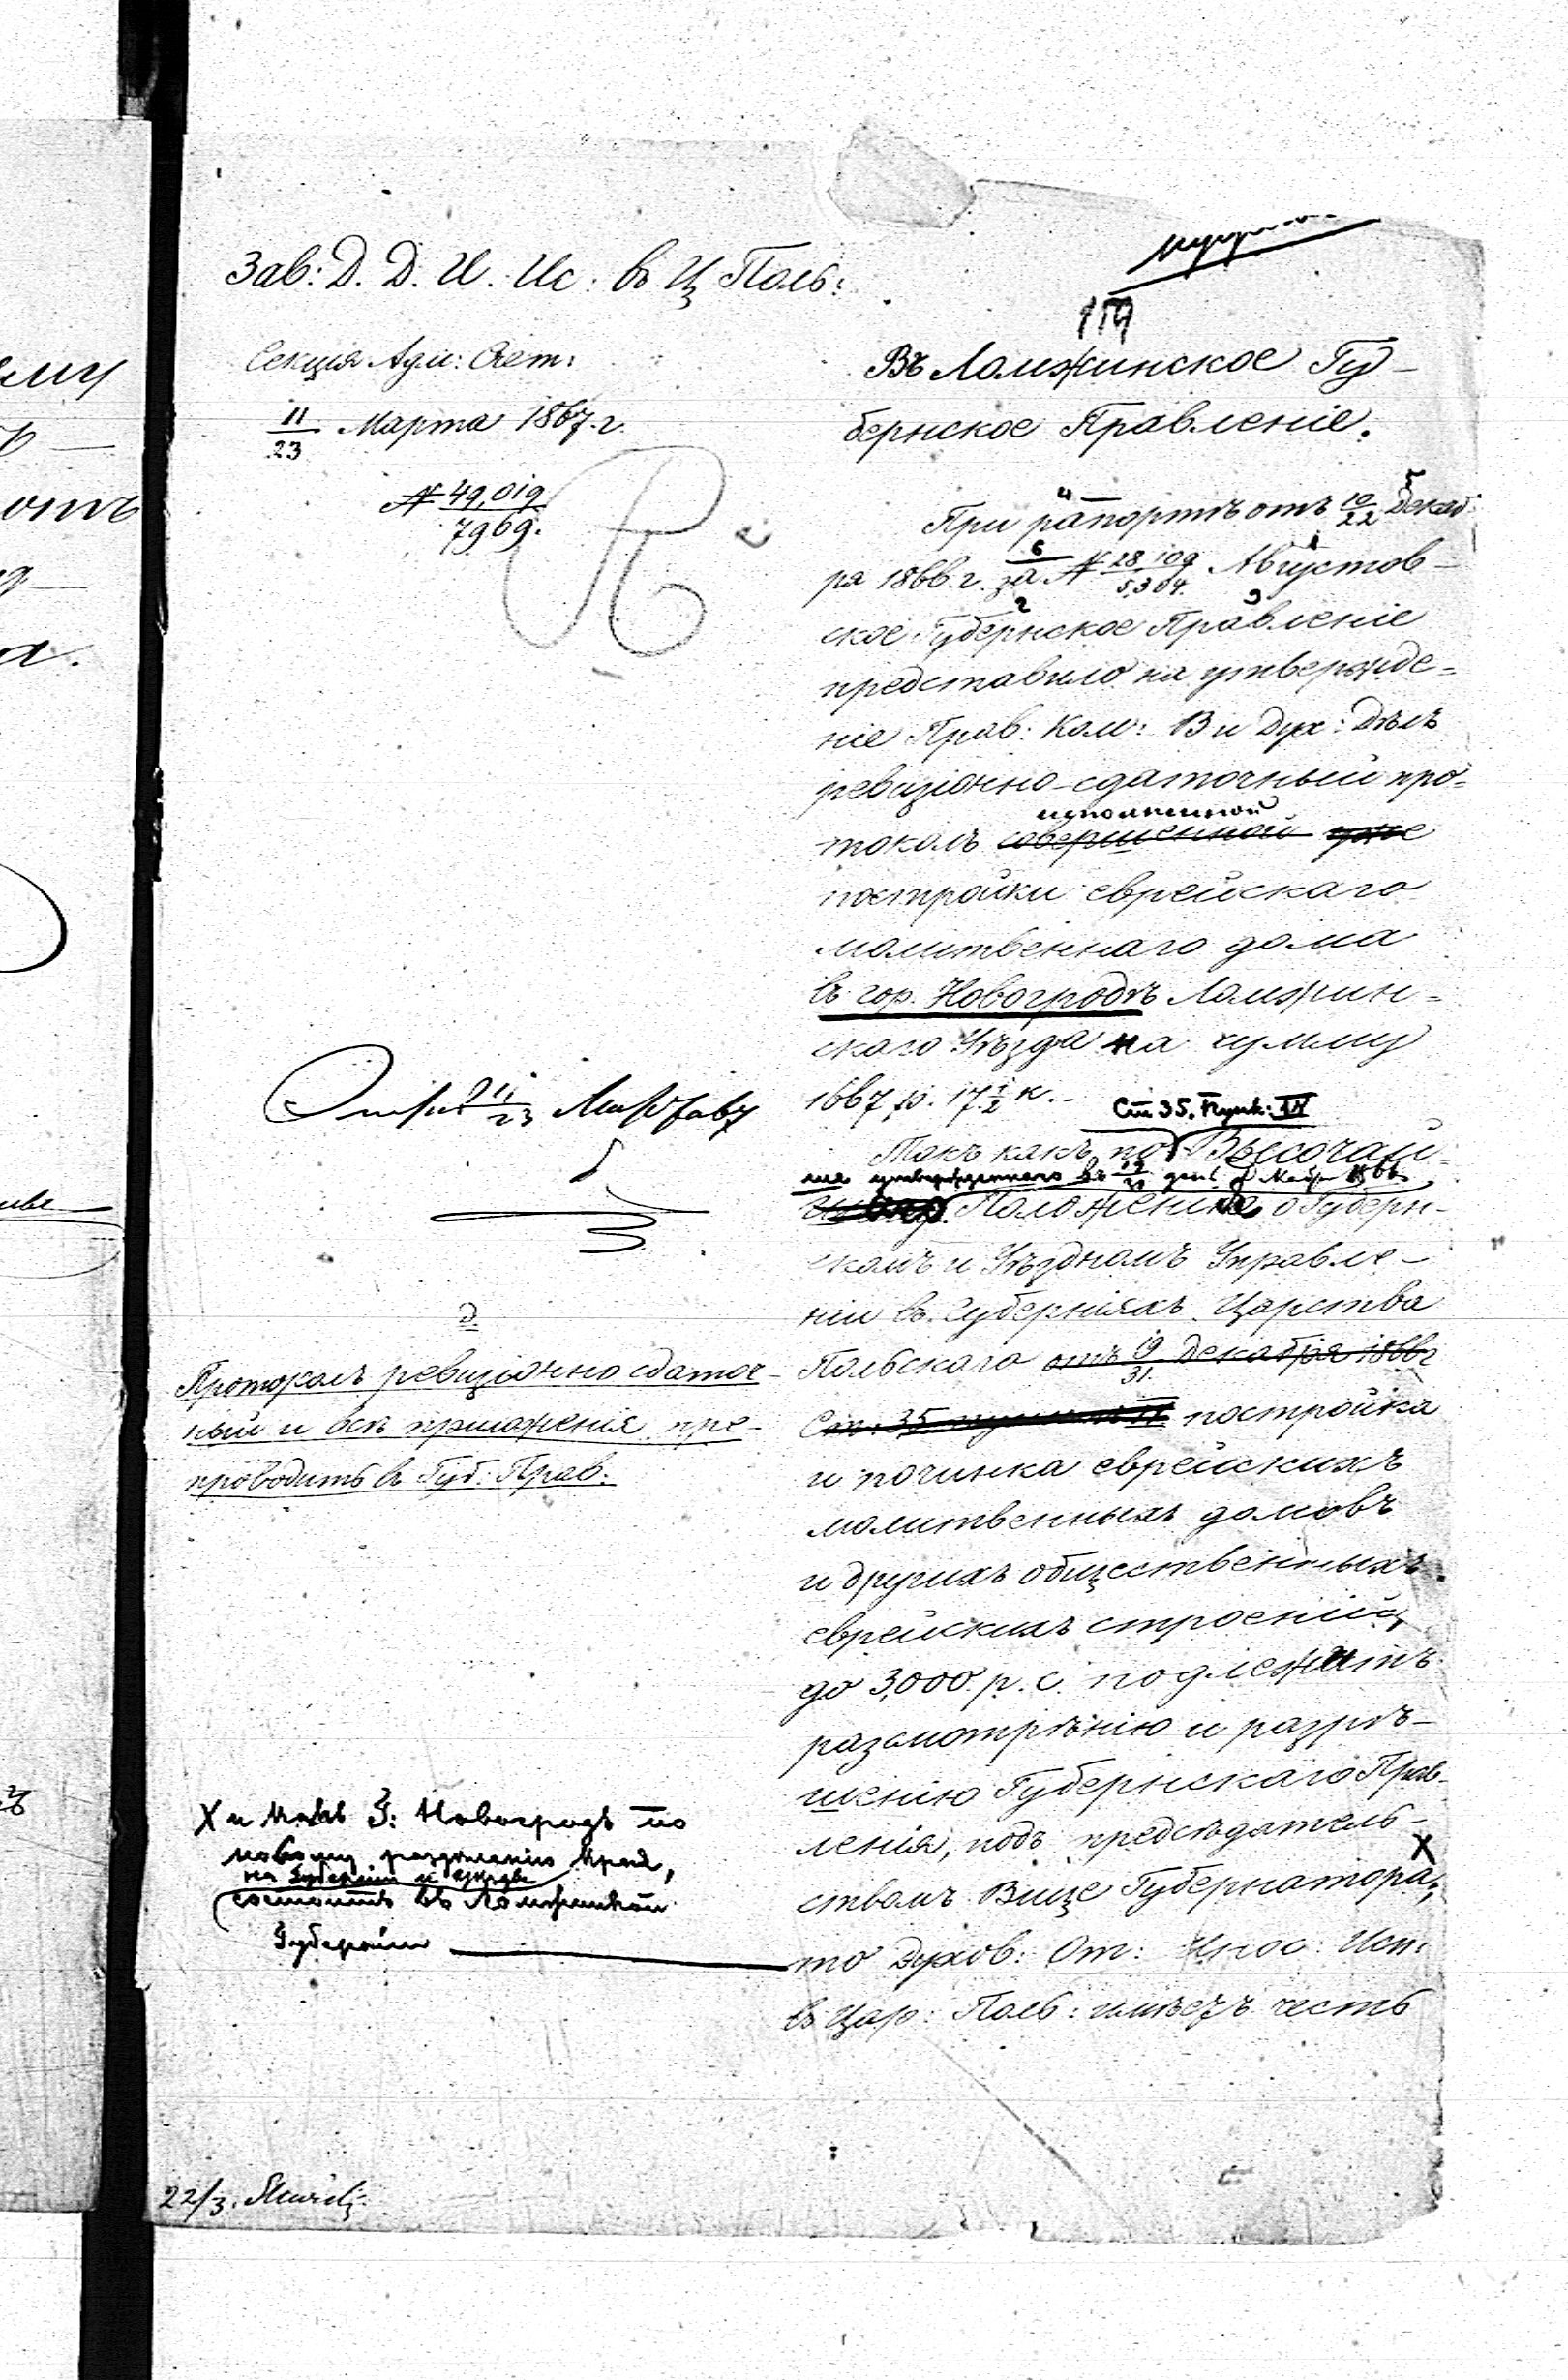 Зав: Д. Д. И. Ис: въ Ц Поль:
Секція Адм: Счет:
11/23 Марта 1867.г.
№ 49,019/7969.
159
Въ Ломжинское Гу-
бернское Правленіе.
При рапортѣ отъ 10/22 Декаб-
ря 1866.г. за № 28,109/5,304. Августов-
ское Губернское Правленіе
представило на утвержде-
ніе Прав: Ком: В и Дух: Дѣлъ
ревизіонно-сдаточный про-
исполненной
токолъ совершенной уже
постройки еврейскаго
молитвеннаго дома
въ гор. Новогродѣ Ломжин-
скаго Уѣзда на сумму
1667 р. 17 1/2 к.-
Ст 35. Пунк:
Такъ какъ по Высочай-
ше утвержденнаго въ 19/31 день 1866
Положенія о Губерн-
скомъ и Уѣздномъ Управле-
ніи въ Губерніяхъ Царства
Польскаго отъ 19/31. Декабря 1866г
Ст. 35 постройка
и починка еврейскихъ
молитвенныхъ домовъ
и другихъ общественныхъ
еврейскихъ строеній,
до 3,000. р. с. подлежитъ
разсмотрѣнію и разрѣ-
шенію Губернскаго Прав-
ленія, подъ предсѣдатель-
ствомъ Вице Губернатора, X
то Духов: От: Инос: Исп:
въ Цар: Поль: имѣетъ честь
11/23
Д.
Протоколъ ревизіонно сдаточ-
ный и всѣ приложенія пре-
проводить въ Губ: Прав:
X и какъ Г: Новогродъ по
новому раздѣленію Края,
на Губерніи и уѣзды
состоитъ въ Ломжинской
Губерніи
22/3.